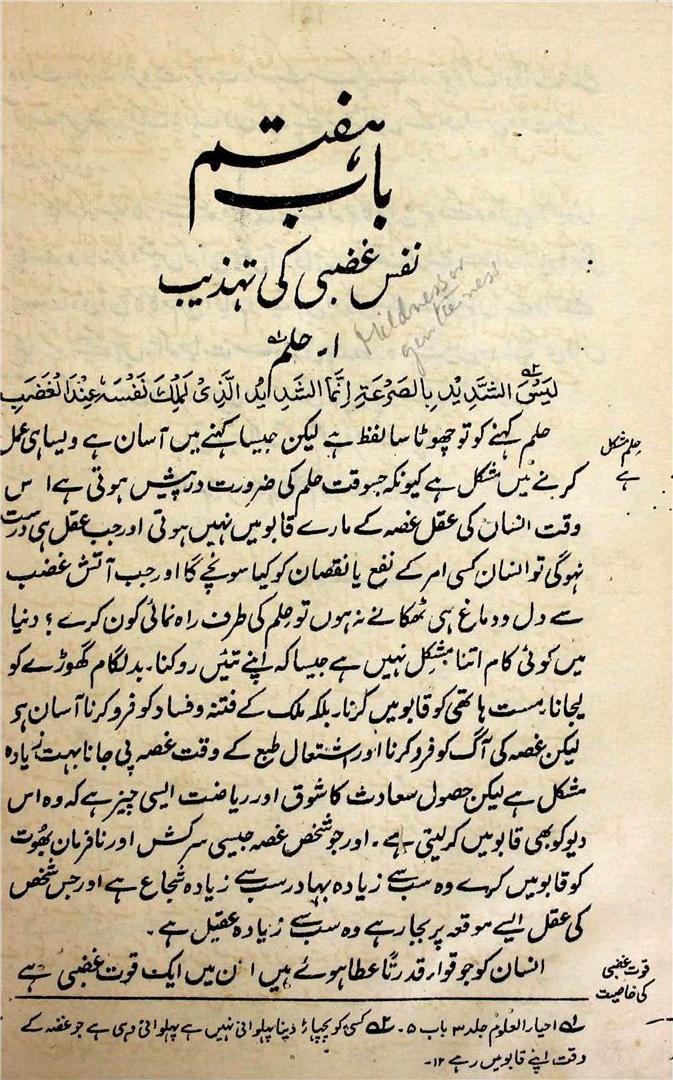 باب ہفتم
نفس غضبی کی تہذیب
۱۔ حلم ؎۱
Mildness or
gentleness
لَیْسَ الشَّدِیْدُ بِالصُّرَعَۃِ اِنَّمَا الشَّدِیْدُ الَّذِیْ یَمْلِکُ نَفْسَہٗ عِنْدَ الْغَضَبِ ؎۲
حلم مشکل
ہے
حلم کہنے کو تو چھوٹا سا لفظ ہے لیکن جیسا کہنے میں آسان ہے ویسا ہی عمل
کرنے میں مشکل ہے کیونکہ جسوقت حلم کی ضرورت درپیش ہوتی ہے اس
وقت انسان کی عقل غصہ کے مارے قابو میں نہیں ہوتی اور جب عقل ہی درست
نہوگی تو انسان کسی امر کے نفع یا نقصان کو کیا سونچے گا اور جب آتش غضب
سے دل و دماغ ہی ٹھکانے نہ ہوں تو حلم کی طرف راہ نمائی کون کرے؟ دنیا
میں کوئی کام اتنا مشکل نہیں ہے جیسا کہ اپنے تئیں روکنا۔ بدلگام گھوڑے کو
لیجانا۔ مست ہاتھی کو قابو میں کرنا۔ بلکہ ملک کے فتنہ و فساد کو فرو کرنا آسان ہی
لیکن غصہ کی آگ کو فرو کرنا اور اشتعال طبع کے وقت غصہ پی جانا بہت زیادہ
مشکل ہے لیکن حصول سعادت کا شوق اور ریاضت ایسی چیز ہے کہ وہ اس
دیو کو بھی قابو میں کر لیتی ہے۔ اور جو شخص غصہ جیسی سرکش اور نافرمان بھوت
کو قابو میں کرے وہ سب سے زیادہ بہادر سب سے زیادہ شجاع ہے اور جس شخص
کی عقل ایسے موقعہ پر بجا رہے وہ سب سے زیادہ عقیل ہے۔
قوت غضبی
کی خاصیت
انسان کو جو قوا قدرتاً عطا ہوئے ہیں ان میں ایک قوت غضبی ہے
؎۱ احیاء العلوم جلد ۳ باب ۵۔ ؎۲ کسی کو پچھاڑ دینا پہلوانی نہیں ہے پہلوانی وہی ہے جو غصہ کے
وقت اپنے قابو میں رہے ۱۲۔